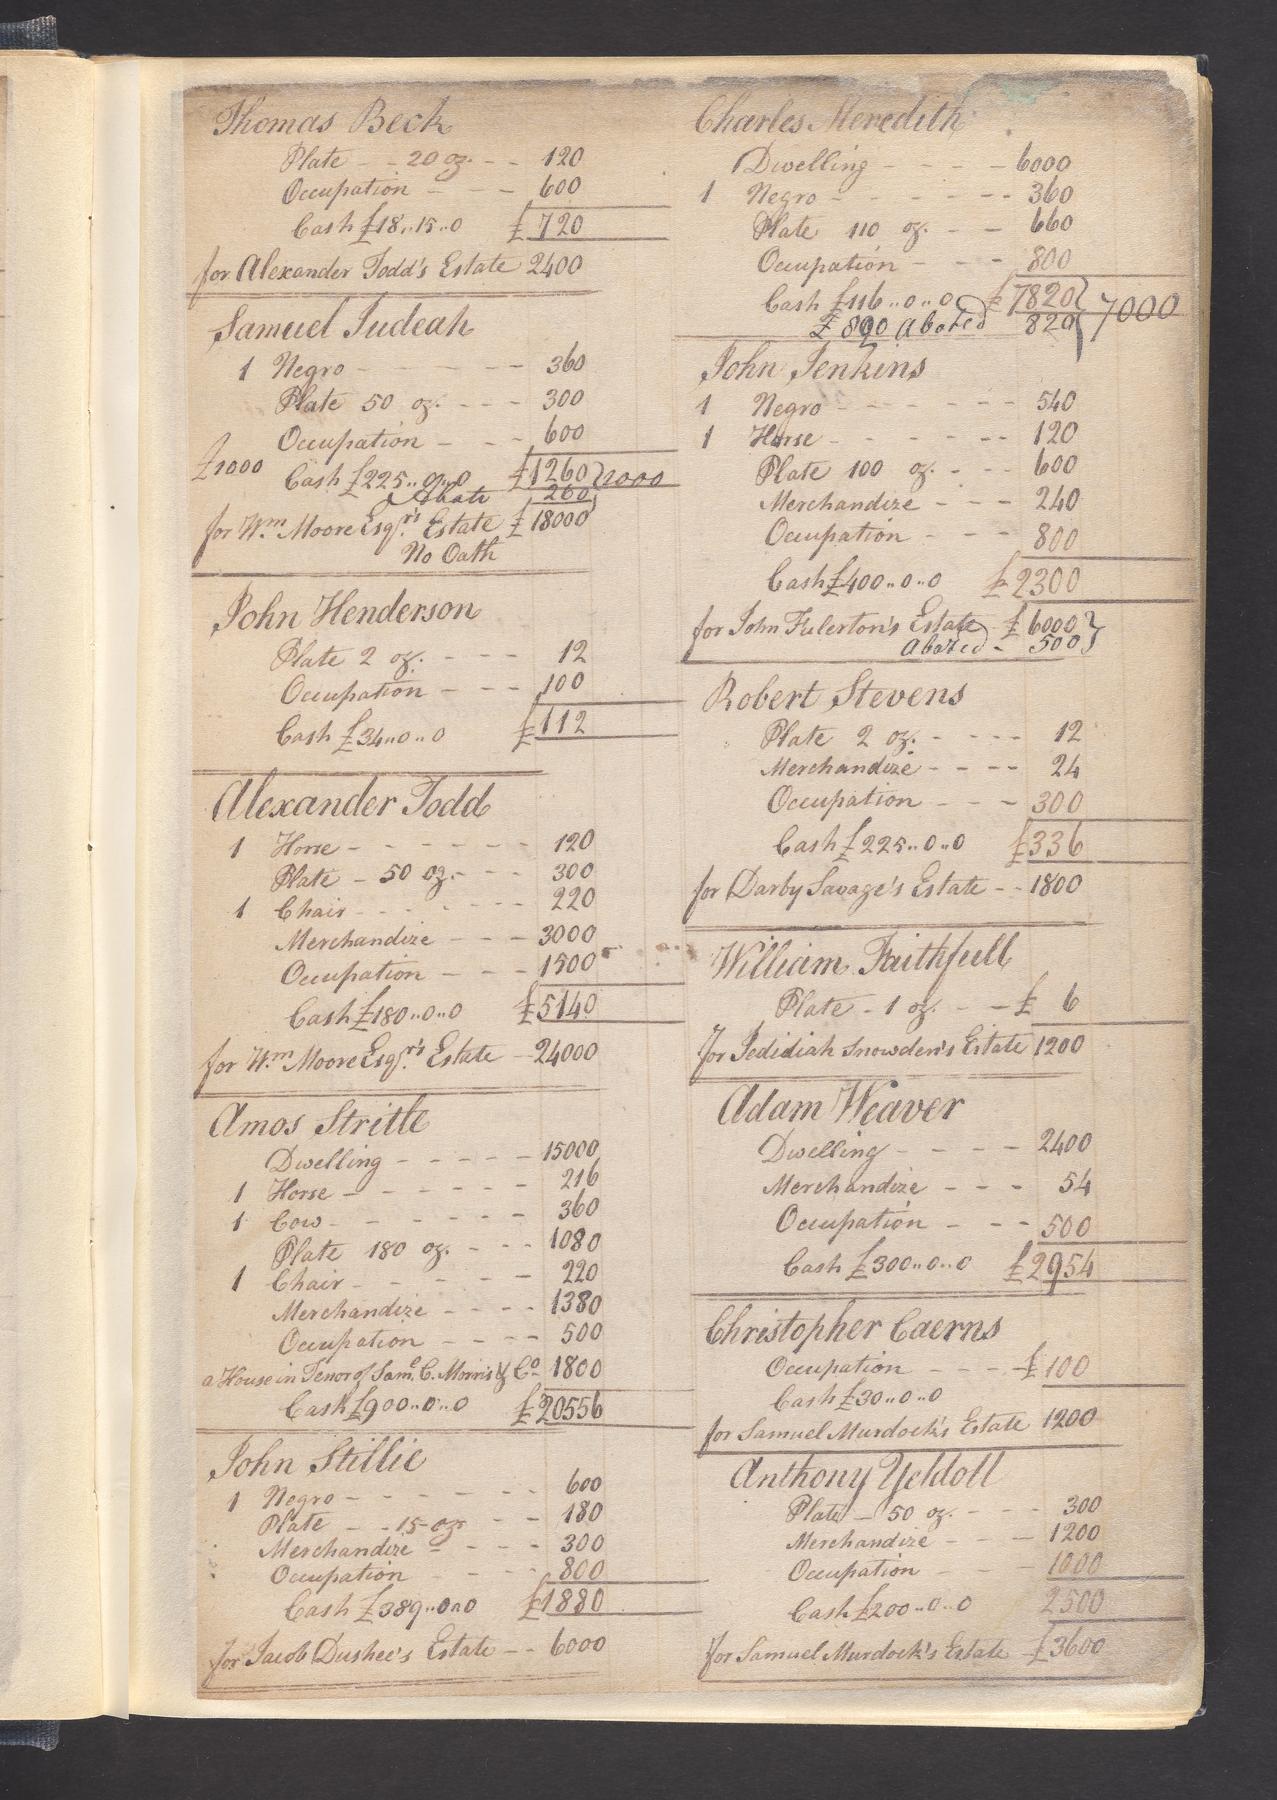 Thomas Beck
Plate - - 20 oz. - - 120
Occupation - - - 600
Cash £18..15..0 £720
for Alexander Todd's Estate 2400
Samuel Judeah
1 Negro - - - - - - 360
Plate 50 oz. - - - 300
Occupation - - - 600
£1000 Cash £225..0..0 £1260 } 1000
abate 260
for Wm. Moore Esqr's. Estate £18000
No Oath
John Henderson
Plate 2 oz. - - - - 12
Occupation - - - 100
Cash £34..0..0 £112
Alexander Todd
1 Horse - - - - - - - 120
Plate - 50 oz. - - - 300
1 Chair - - - - - - - 220
Merchandize - - - 3000
Occupation - - - 1500
Cash £180..0..0 £5140
for Wm. Moore Esqr's. Estate - 24000
Amos Strittle
Dwelling - - - - - 15000
1 Horse - - - - - - 216
1 Cow - - - - - - 360
Plate 180 oz. - - - 1080
1 Chair - - - - - 220
Merchandize - - - - 1380
Occupation - - - - 500
a House in Tenor of Saml. C. Morris & Co. 1800
Cash £900..0..0 £20556
John Stillie
1 Negro - - - - - - 600
Plate - - 15 oz - - 180
Merchandize - - - - 300
Occupation - - - - 800
Cash £389..0..0 £1880
for Jacob Dushee's Estate - - 6000
Charles Meredith
Dwelling - - - - 6000
1 Negro - - - - - - - 360
Plate 110 oz. - - 660
Occupation - - - 800
Cash £116..0..0 £7820 } 7000
£820 abated 820
John Jenkins
1 Negro - - - - - - - 540
1 Horse - - - - - - - 120
Plate 100 oz. - - - 600
Merchandize - - - 240
Occupation - - - 800
Cash £400..0..0 £2300
for John Fulerton's Estate £6000 }
abated - 500
Robert Stevens
Plate 2 oz. - - - - 12
Merchandize - - - - 24
Occupation - - - 300
Cash £225..0..0 £336
for Darby Savage's Estate - - 1800
William Faithfull
Plate - 1 oz. - - £ 6
for Jedidiah Snowden's Estate 1200
Adam Weaver
Dwelling - - - - 2400
Merchandize - - - 54
Occupation - - - 500
Cash £300..0..0 £2954
Christopher Caerns
Occupation - - - - £100
Cash £30..0..0
for Samuel Murdock's Estate 1200
Anthony Yeldoll
Plate - 50 oz. - - - 300
Merchandize - - - 1200
Occupation - - 1000
Cash £200..0..0 2500
for Samuel Murdock's Estate - £3600